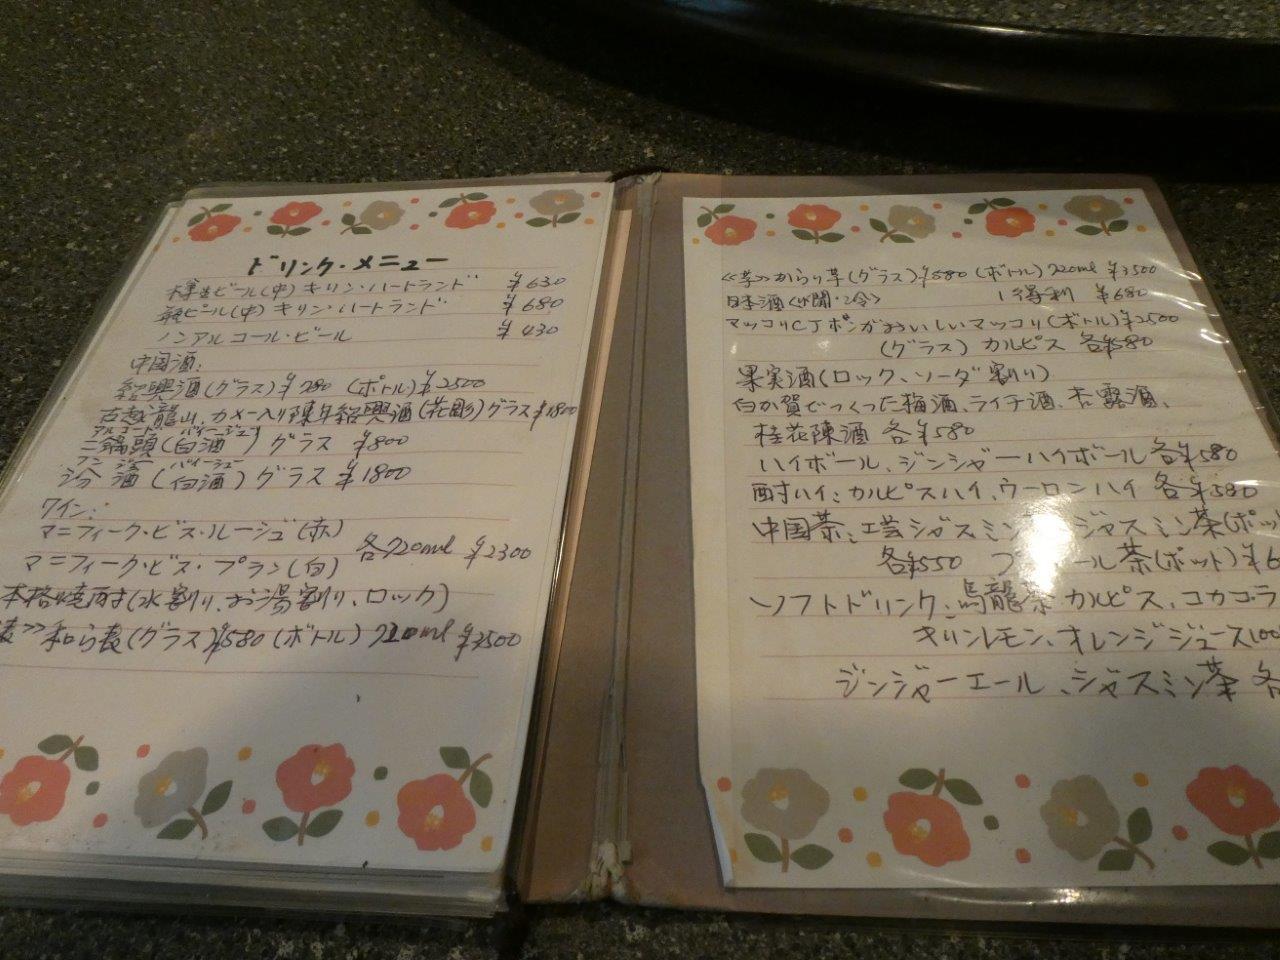 ドリンク・メニュー
樽生ビール(中) キリン・ハートランド ¥630
ビール(中) キリン・ハートランド ¥680
ノンアルコール・ビール ¥430
中国酒:
紹興酒(グラス)¥780 (ボトル)¥2500
古越龍山、カメ入り陳年紹興酒(花彫)グラス¥1800
アルコード バイージュウ
二鍋頭(白酒) グラス ¥800
フンジュー バイージュー
汾酒(白酒)グラス ¥1800
ワイン:
マニフィーク・ビス・ルージュ(赤)
各720ml ¥2300
マニフィーク・ビス・ブラン(白)
本格焼酎(水割り、お湯割り、ロック)
麦》和ら麦(グラス)¥580 (ボトル) 720ml ¥3500
《芋》からり芋(グラス)¥580 (ボトル) 720ml ¥3500
日本酒 1合徳利 ¥680
マッコリCJポンがおいしいマッコリ(ボトル)¥2500
(グラス) カルピス 各¥580
果実酒(ロック、ソーダ割り)
白加賀でつくった梅酒、ライチ酒、杏露酒、
桂花陳酒 各¥580
ハイボール、ジンジャーハイボール 各¥580
酎ハイ:カルピスハイ、ウーロンハイ 各¥580
中国茶:工芸ジャスミン ジャスミン茶(ポッ
各¥550 プ ール茶(ポット)¥6
ソフトドリンク、烏龍茶 カルピス、コカコーラ
キリンレモン、オレンジジュース100
ジンジャーエール、ジャスミン茶 各